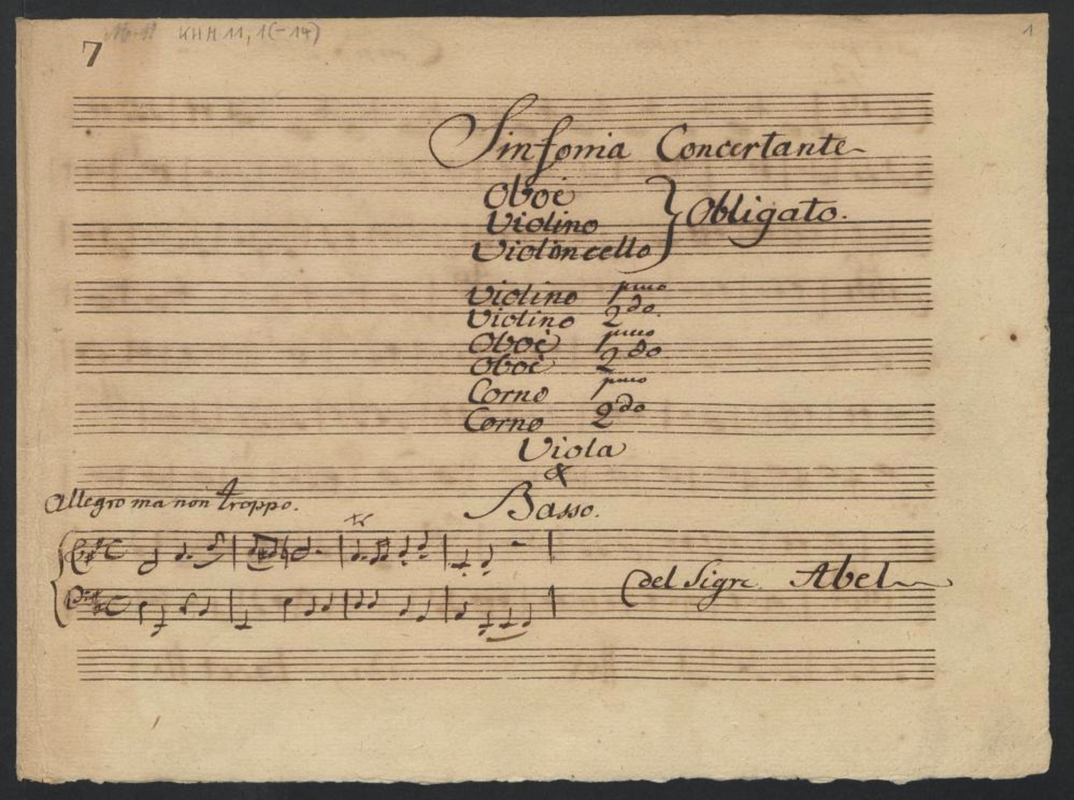 7 KHM 11, 1(-14) 1
Sinfonia Concertante
Oboè
Violino
Violoncello
Obligato.
Violino pmo
Violino 2do.
Oboè pmo
Oboè 2do
Corno pmo
Corno 2do
Viola
&
Basso.
Allegro ma non troppo.
del Sigre Abel